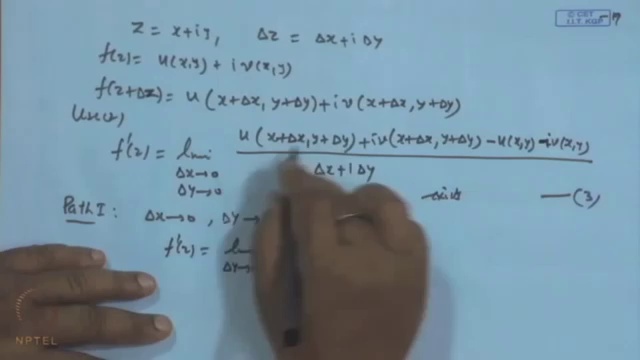 © CET
I.I.T. KGP
z = x+iy, Δz = Δx+iΔy
f(z) = u(x,y) + i v(x,y)
f(z+Δz) = u(x+Δx, y+Δy) + i v(x+Δx, y+Δy)
f'(z) = lim u(x+Δx, y+Δy) + iv(x+Δx, y+Δy) - u(x,y) - iv(x,y)
Δx→0 Δx+iΔy
Δy→0 exists —(3)
Path I: Δx→0, Δy→
f'(z) =
Δy→
NPTEL